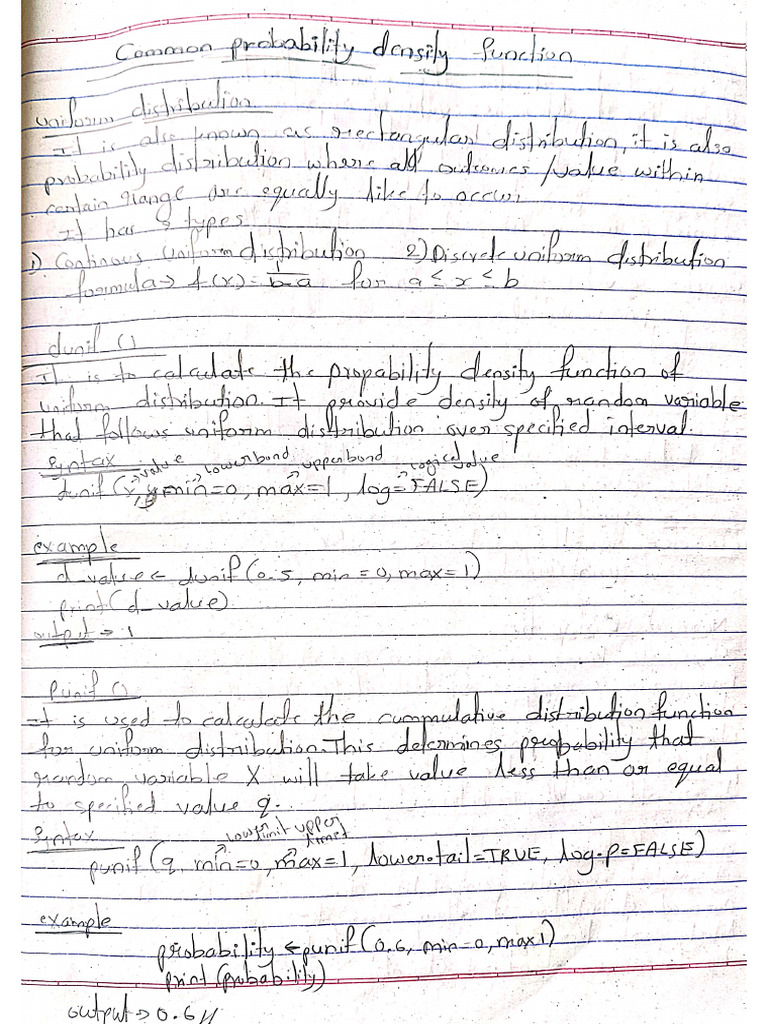 Common probability density function
uniform distribution
It is also known as rectangular distribution, it is also
probability distribution where all outcomes /value within
certain range are equally like to occur.
It has 2 types
1) Continous uniform distribution 2) Discrete uniform distribution
formula → f(x) = 1/b-a for a ≤ x ≤ b
dunif ()
It is to calculate the propability density function of
uniform distribution. It provide density of random variable
that follows uniform distribution over specified interval.
Syntax → value → lowerbond → upperbond → logical value
dunif (x, min=0, max=1, log=FALSE)
example
d_value ← dunif(0.5, min=0, max=1)
print(d_value)
output → 1
Punif ()
It is used to calculate the cummulative distribution function
for uniform distribution. This determines propbability that
random variable X will take value less than or equal
to specified value q.
Syntax lower limit upper limit
punif (q, min=0, max=1, lower.tail=TRUE, log.p=FALSE)
example
probability ← punif(0.6, min=0, max1)
print (probability)
output → 0.6